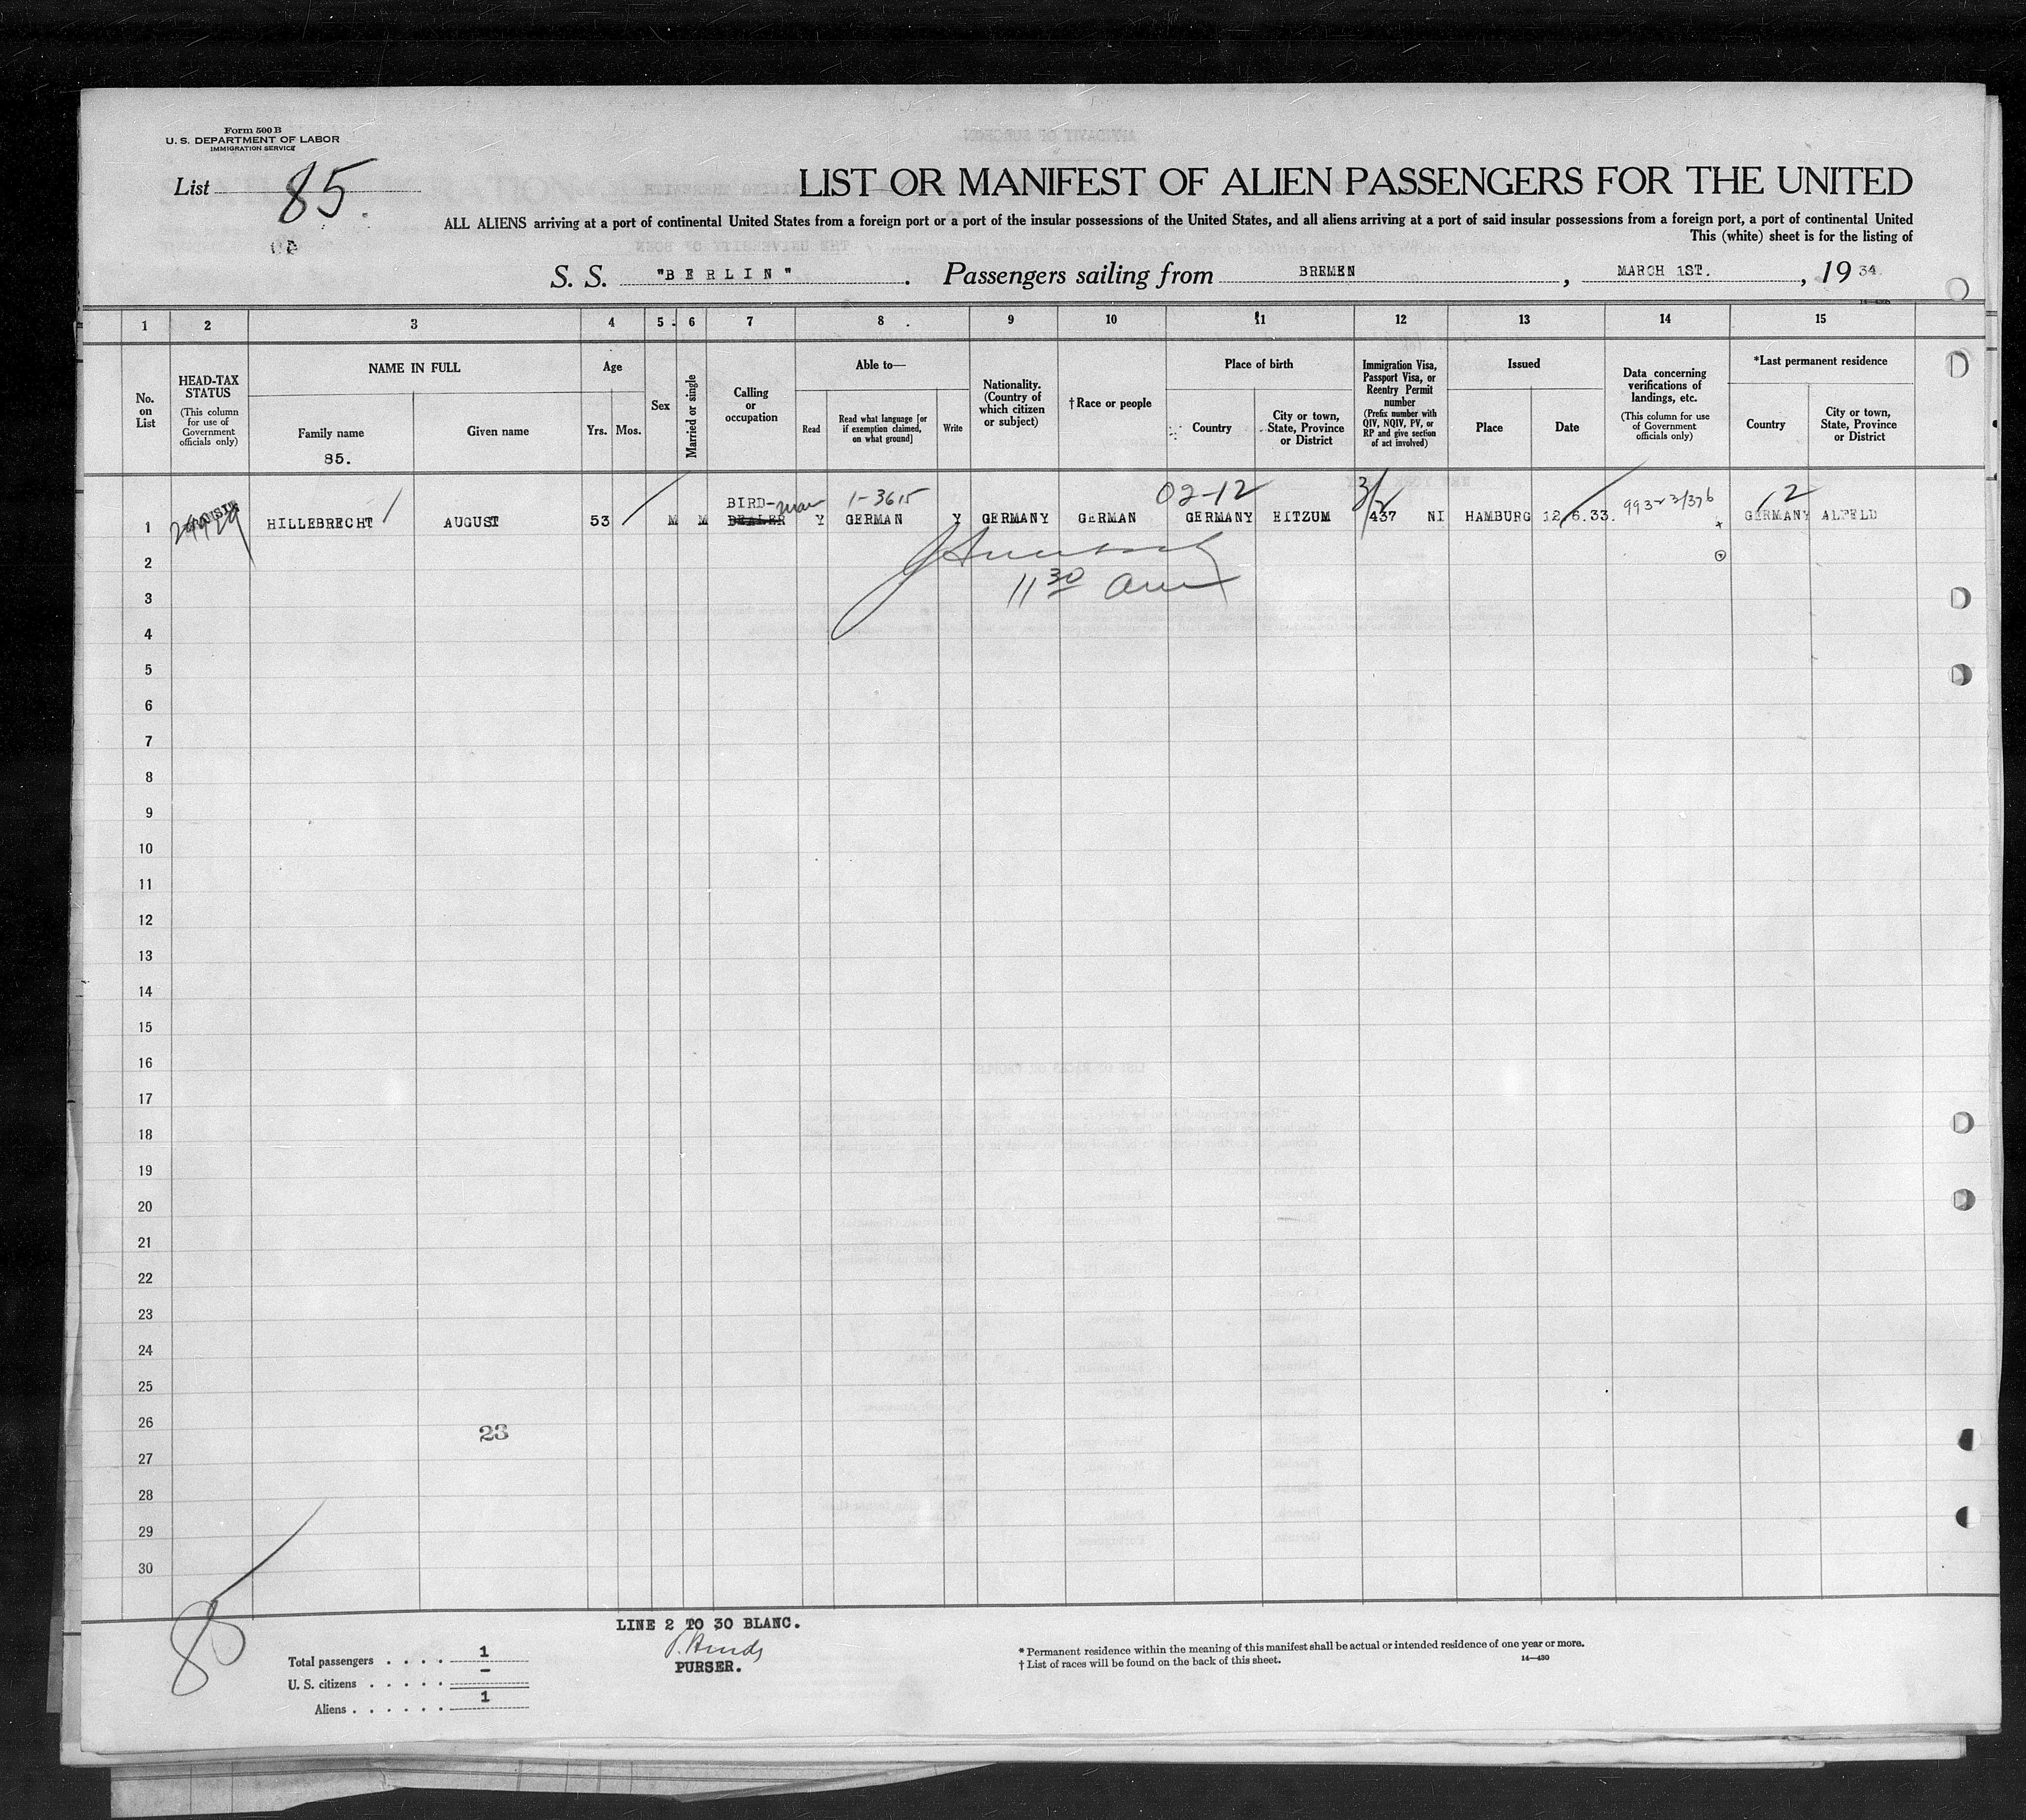 Form 500 B
U. S. DEPARTMENT OF LABOR
IMMIGRATION SERVICE
List 85.
LIST OR MANIFEST OF ALIEN PASSENGERS FOR THE UNITED
ALL ALIENS arriving at a port of continental United States from a foreign port or a port of the insular possessions of the United States, and all aliens arriving at a port of said insular possessions from a foreign port, a port of continental United
This (white) sheet is for the listing of
S. S. "BERLIN". Passengers sailing from BREMEN, MARCH 1ST., 19 34.
1 2 3 4 5 6 7 8 9 10 11 12 13 14 15
No. on List
HEAD-TAX STATUS
(This column for use of Government officials only)
NAME IN FULL
Family name
85.
Given name
Age
Yrs. Mos.
Sex
Married or single
Calling or occupation
Able to—
Read
Read what language [or if exemption claimed, on what ground]
Write
Nationality. (Country of which citizen or subject)
†Race or people
Place of birth
Country
City or town, State, Province or District
Immigration Visa, Passport Visa, or Reentry Permit number
(Prefix number with QIV, NQIV, PV, or RP and give section of act involved)
Issued
Place
Date
Data concerning verifications of landings, etc.
(This column for use of Government officials only)
*Last permanent residence
Country
City or town, State, Province or District
BIRD-man 1-3615 02-12 3/2 12
1 HILLEBRECHT AUGUST 53 M M DEALER Y GERMAN Y GERMANY GERMAN GERMANY EITZUM 437 NI HAMBURG 12/6.33. GERMANY ALFELD
2
11 30 am
3
4
5
6
7
8
9
10
11
12
13
14
15
16
17
18
19
20
21
22
23
24
25
26
23
27
28
29
30
85
LINE 2 TO 30 BLANC.
PURSER.
Total passengers . . . . 1
U. S. citizens . . . . . –
Aliens . . . . . . 1
* Permanent residence within the meaning of this manifest shall be actual or intended residence of one year or more.
† List of races will be found on the back of this sheet.
14—430